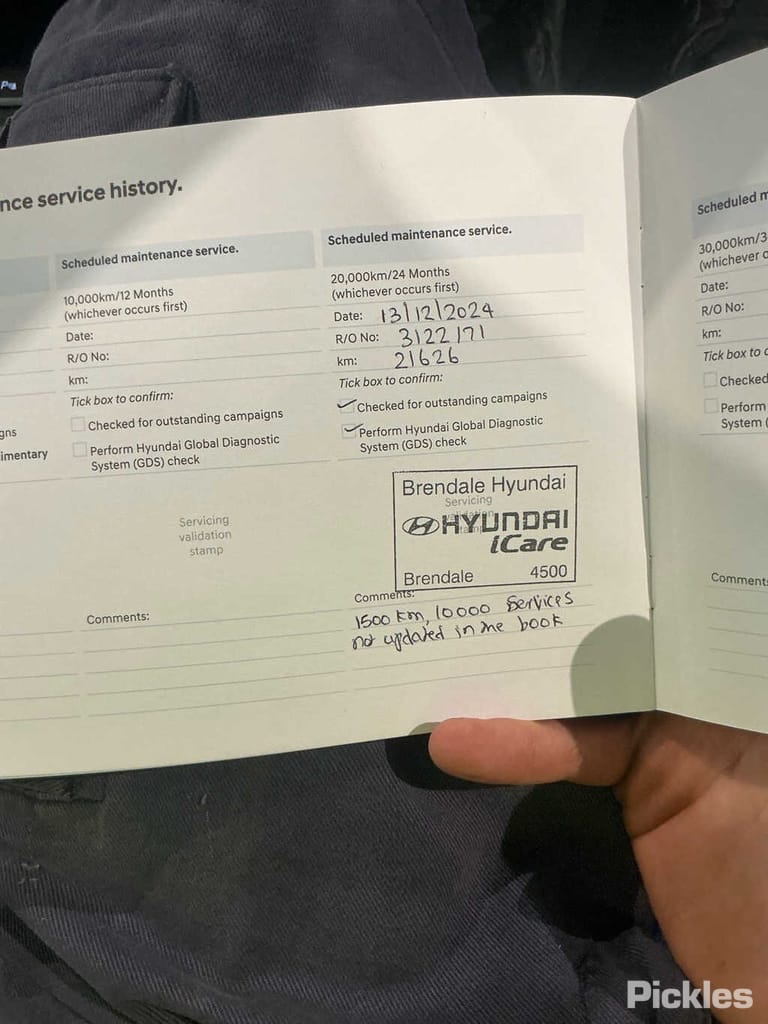 nce service history.
gns
imentary
Scheduled maintenance service.
10,000km/12 Months
(whichever occurs first)
Date:
R/O No:
km:
Tick box to confirm:
Checked for outstanding campaigns
Perform Hyundai Global Diagnostic
System (GDS) check
Servicing
validation
stamp
Comments:
Scheduled maintenance service.
20,000km/24 Months
(whichever occurs first)
Date: 13/12/2024
R/O No: 3122171
km: 21626
Tick box to confirm:
Checked for outstanding campaigns
Perform Hyundai Global Diagnostic
System (GDS) check
Brendale Hyundai
Servicing
validation
HYUNDAI
iCare
Brendale 4500
Comments:
1500 km, 10000 Services
not updated in the book
Scheduled m
30,000km/3
(whichever o
Date:
R/O No:
km:
Tick box to c
Checked
Perform
System (
Comments
Pickles